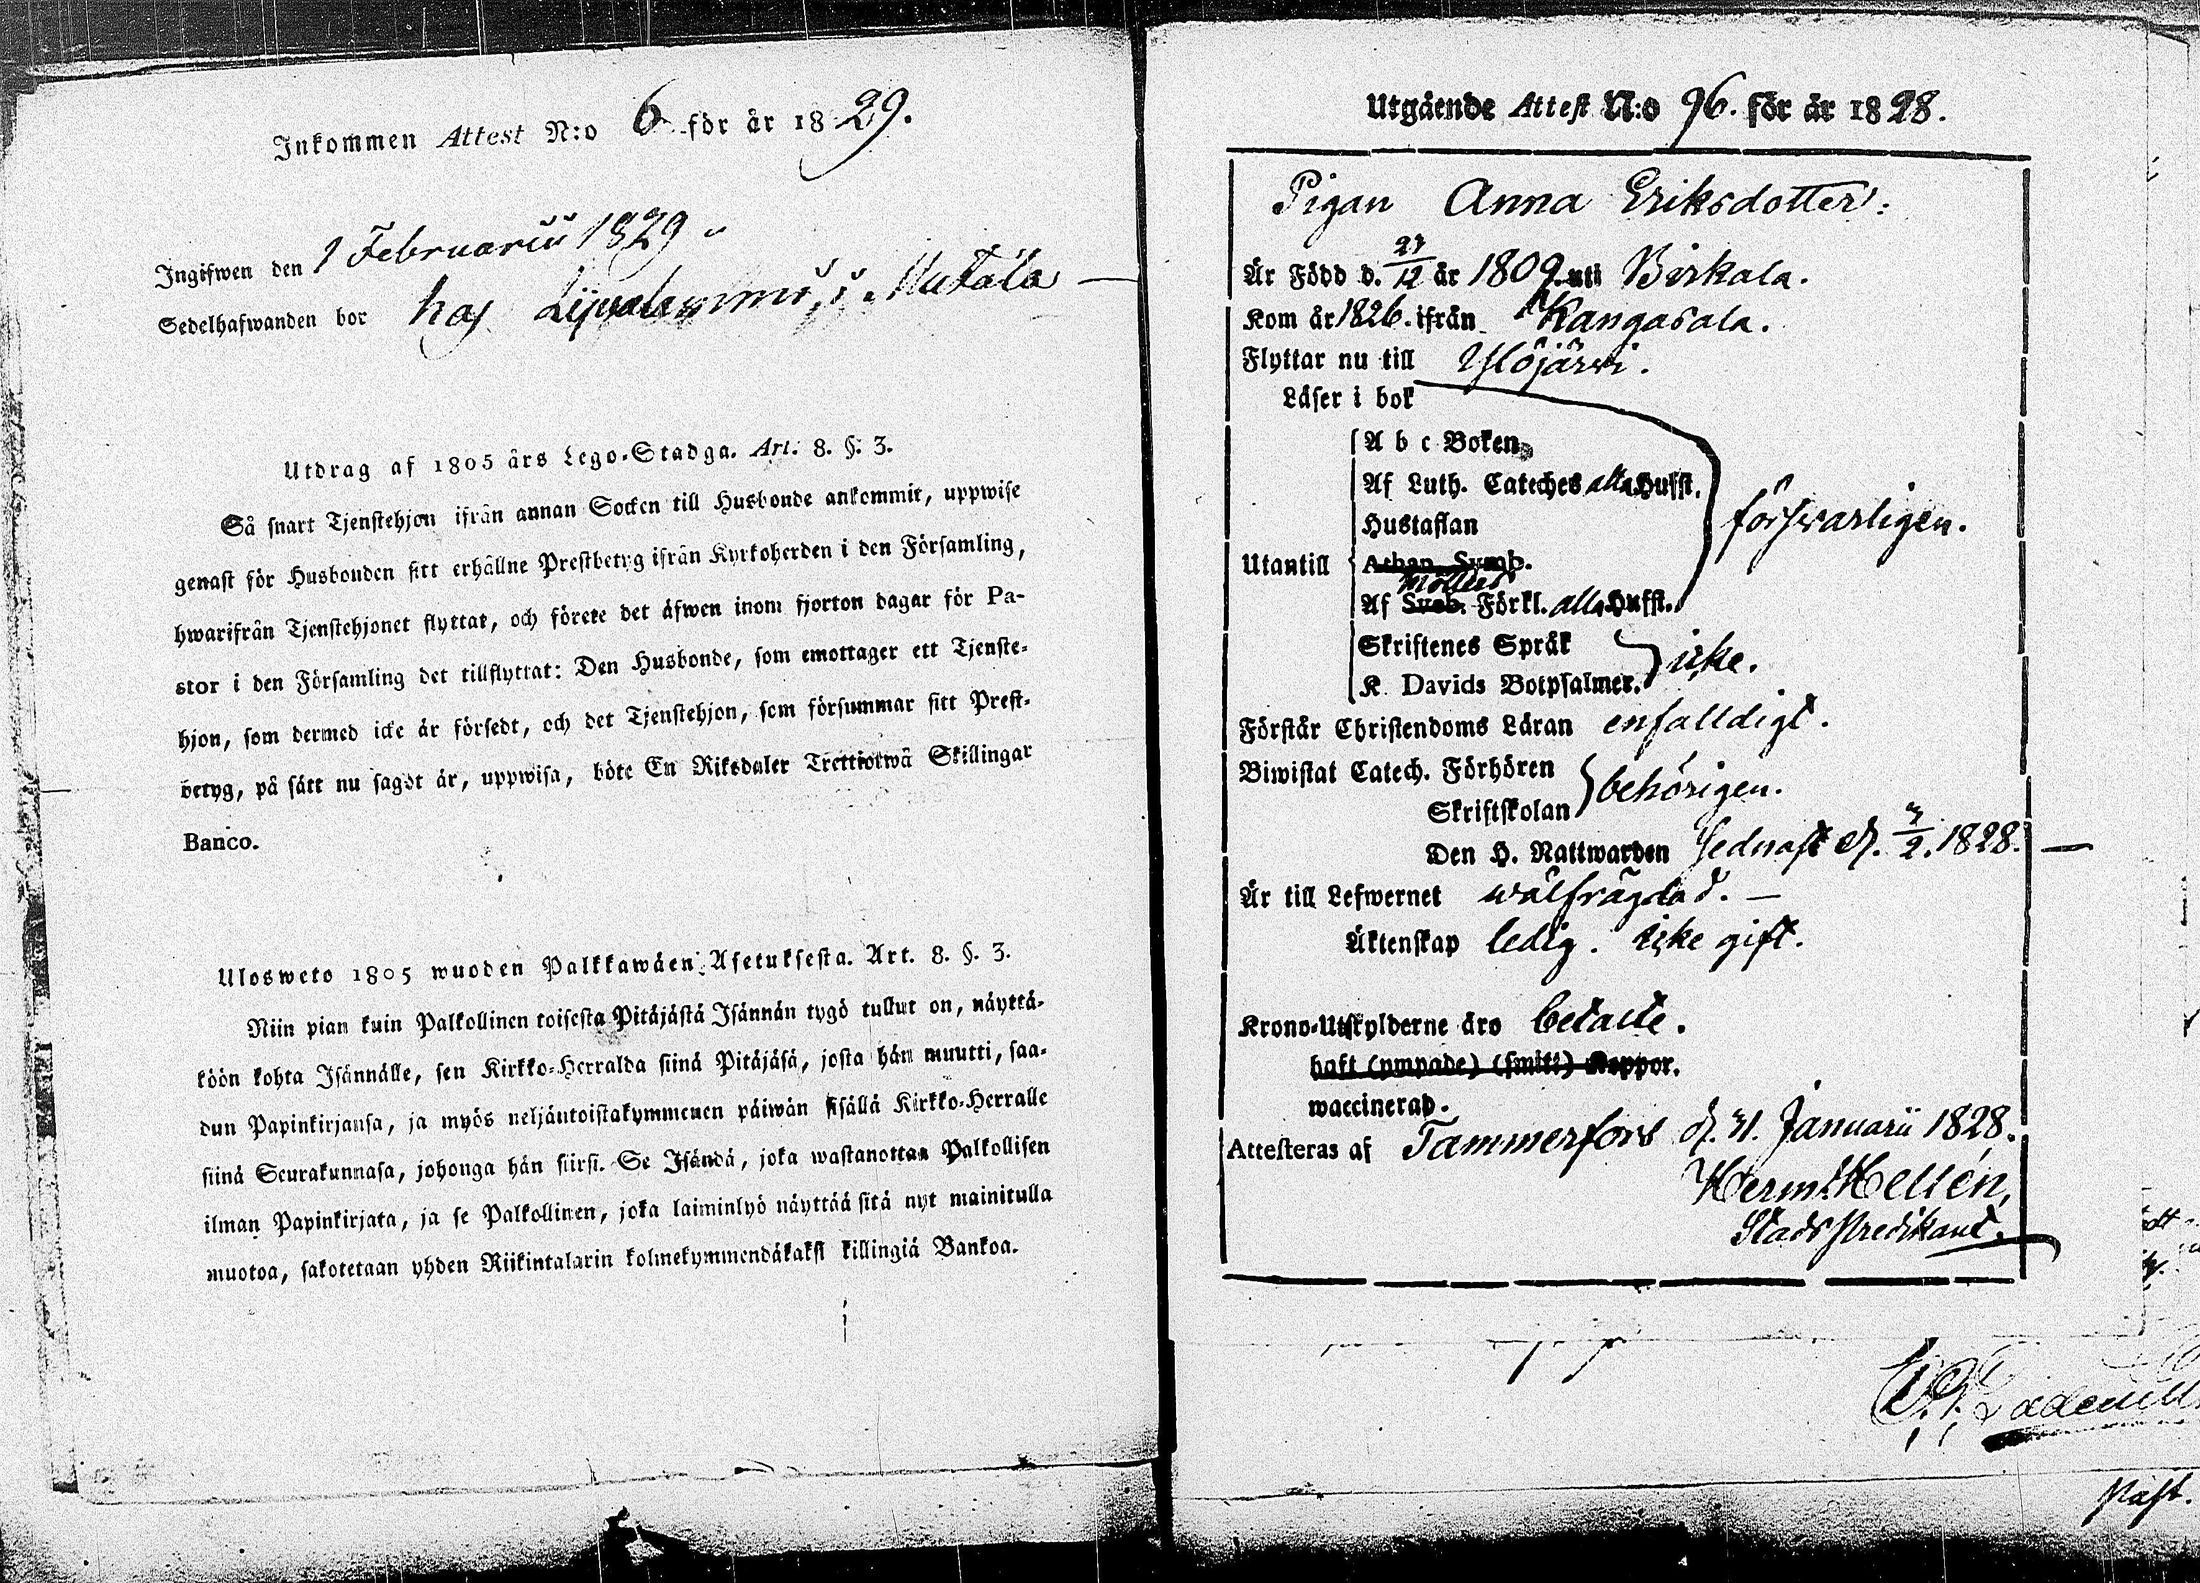 Inkommen Attest N:o 6 för år 1829.
Ingifwen den 1 Februarii 1829
Sedelhafwanden bor hos
Utdrag af 1805 års Lego-Stadga. Art. 8. §. 3.
Så snart Tjenstehjon ifrån annan Socken till Husbonde ankommit, uppwise
genast för Husbonden sitt erhållne Prestbetyg ifrån Kyrkoherden i den Församling,
hwarifrån Tjenstehjonet flyttat, och förete det äfwen inom fjorton dagar för Pa-
stor i den Församling det tillflyttat: Den Husbonde, som emottager ett Tjenste-
hjon, som dermed icke är försedt, och det Tjenstehjon, som försummar sitt Prest-
betyg, på sätt nu sagdt är, uppwisa, böte En Riksdaler Trettiotwå Skillingar
Banco.
Ulosweto 1805 wuoden Palkkawäen Asetuksesta. Art. 8. §. 3.
Niin pian kuin Palkollinen toisesta Pitäjästä Isännän tygö tullut on, näyttä-
köön kohta Isännälle, sen Kirkko-Herralda siinä Pitäjäsä, josta hän muutti, saa-
dun Papinkirjansa, ja myös neljäntoistakymmenen päiwän sisällä Kirkko-Herralle
siinä Seurakunnasa, johonga hän siirsi. Se Isändä, joka wastanottaa Palkollisen
ilman Papinkirjata, ja se Palkollinen, joka laiminlyö näyttää sitä nyt mainitulla
muotoa, sakotetaan yhden Riikintalarin kolmekymmendäkaksi killingiä Bankoa.
Utgående Attest N:o 96. för år 1828.
Pigan Anna Eriksdotter:
Är Född d. 27/12 år 1809. uti Birkala.
Kom år 1826. ifrån Kangasala.
Flyttar nu till Ylöjärwi.
Läser i bok
A b c Boken
Af Luth. Cateches alla Hufst.
Hustaflan
försvarligen.
Utantill Athan. Symb.
Möllers
Af Sveb. Förkl. alla Hufst.
Skriftenes Språk
icke.
K. Davids Botpsalmer.
Förstår Christendoms Läran enfalldigt.
Biwistat Catech. Förhören
behörigen.
Skriftskolan
Den H. Nattwarden sednast d. 3/2. 1828.
Är till Lefwernet wälfrägdad.
Äktenskap ledig. icke gift.
Krono-Utskylderne äro betalte.
haft (ympade) (smitt) Koppor.
waccinerad.
Attesteras af Tammerfors d. 31. Januarii 1828.
Herm. Hellén,
Stads Predikant.
Past.